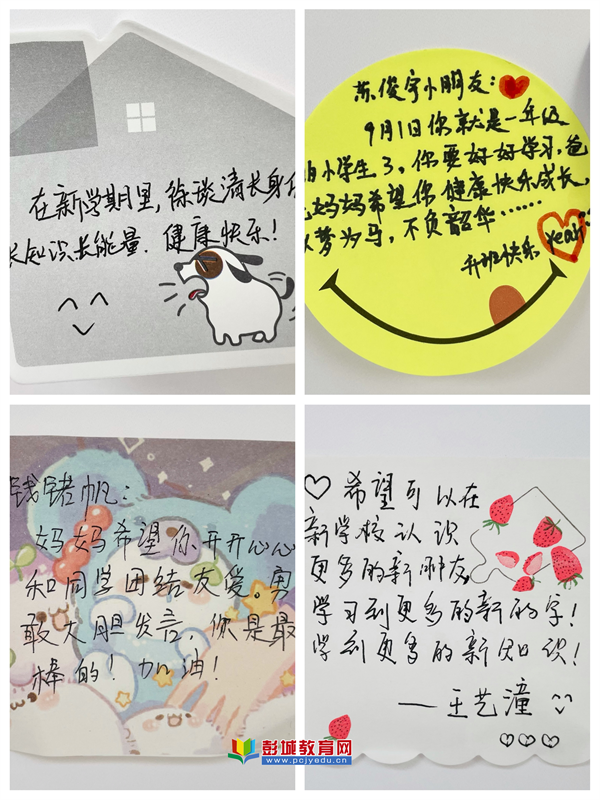 在新学期里,徐谈清长身体
长知识长能量.健康快乐!
苏俊宇小朋友:
9月1日你就是一年级
的小学生了,你要好好学习,爸
爸妈妈希望你健康快乐成长,
以梦为马,不负韶华……
升班快乐 yeah
钱锗帆:
妈妈希望你开开心心
和同学团结友爱 勇
敢大胆发言,你是最
棒的!加油!
希望可以在
新学校认识
更多的新朋友,
学习到更多的新的字!
学到更多的新知识!
——王艺潼
彭城教育网
www.pcjyedu.cn